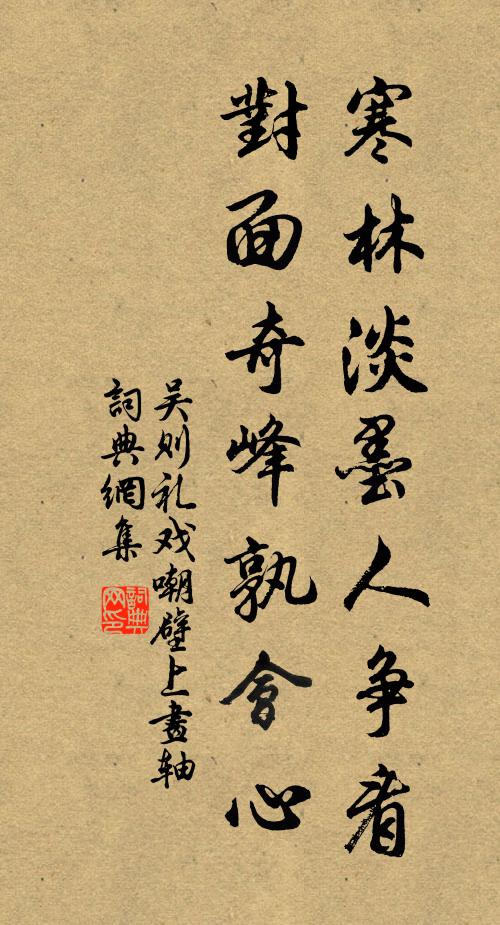 寒林淡墨人争看
對面奇峰孰會心
吴则礼戏嘲壁上畫轴
詞典網集
詞典网印